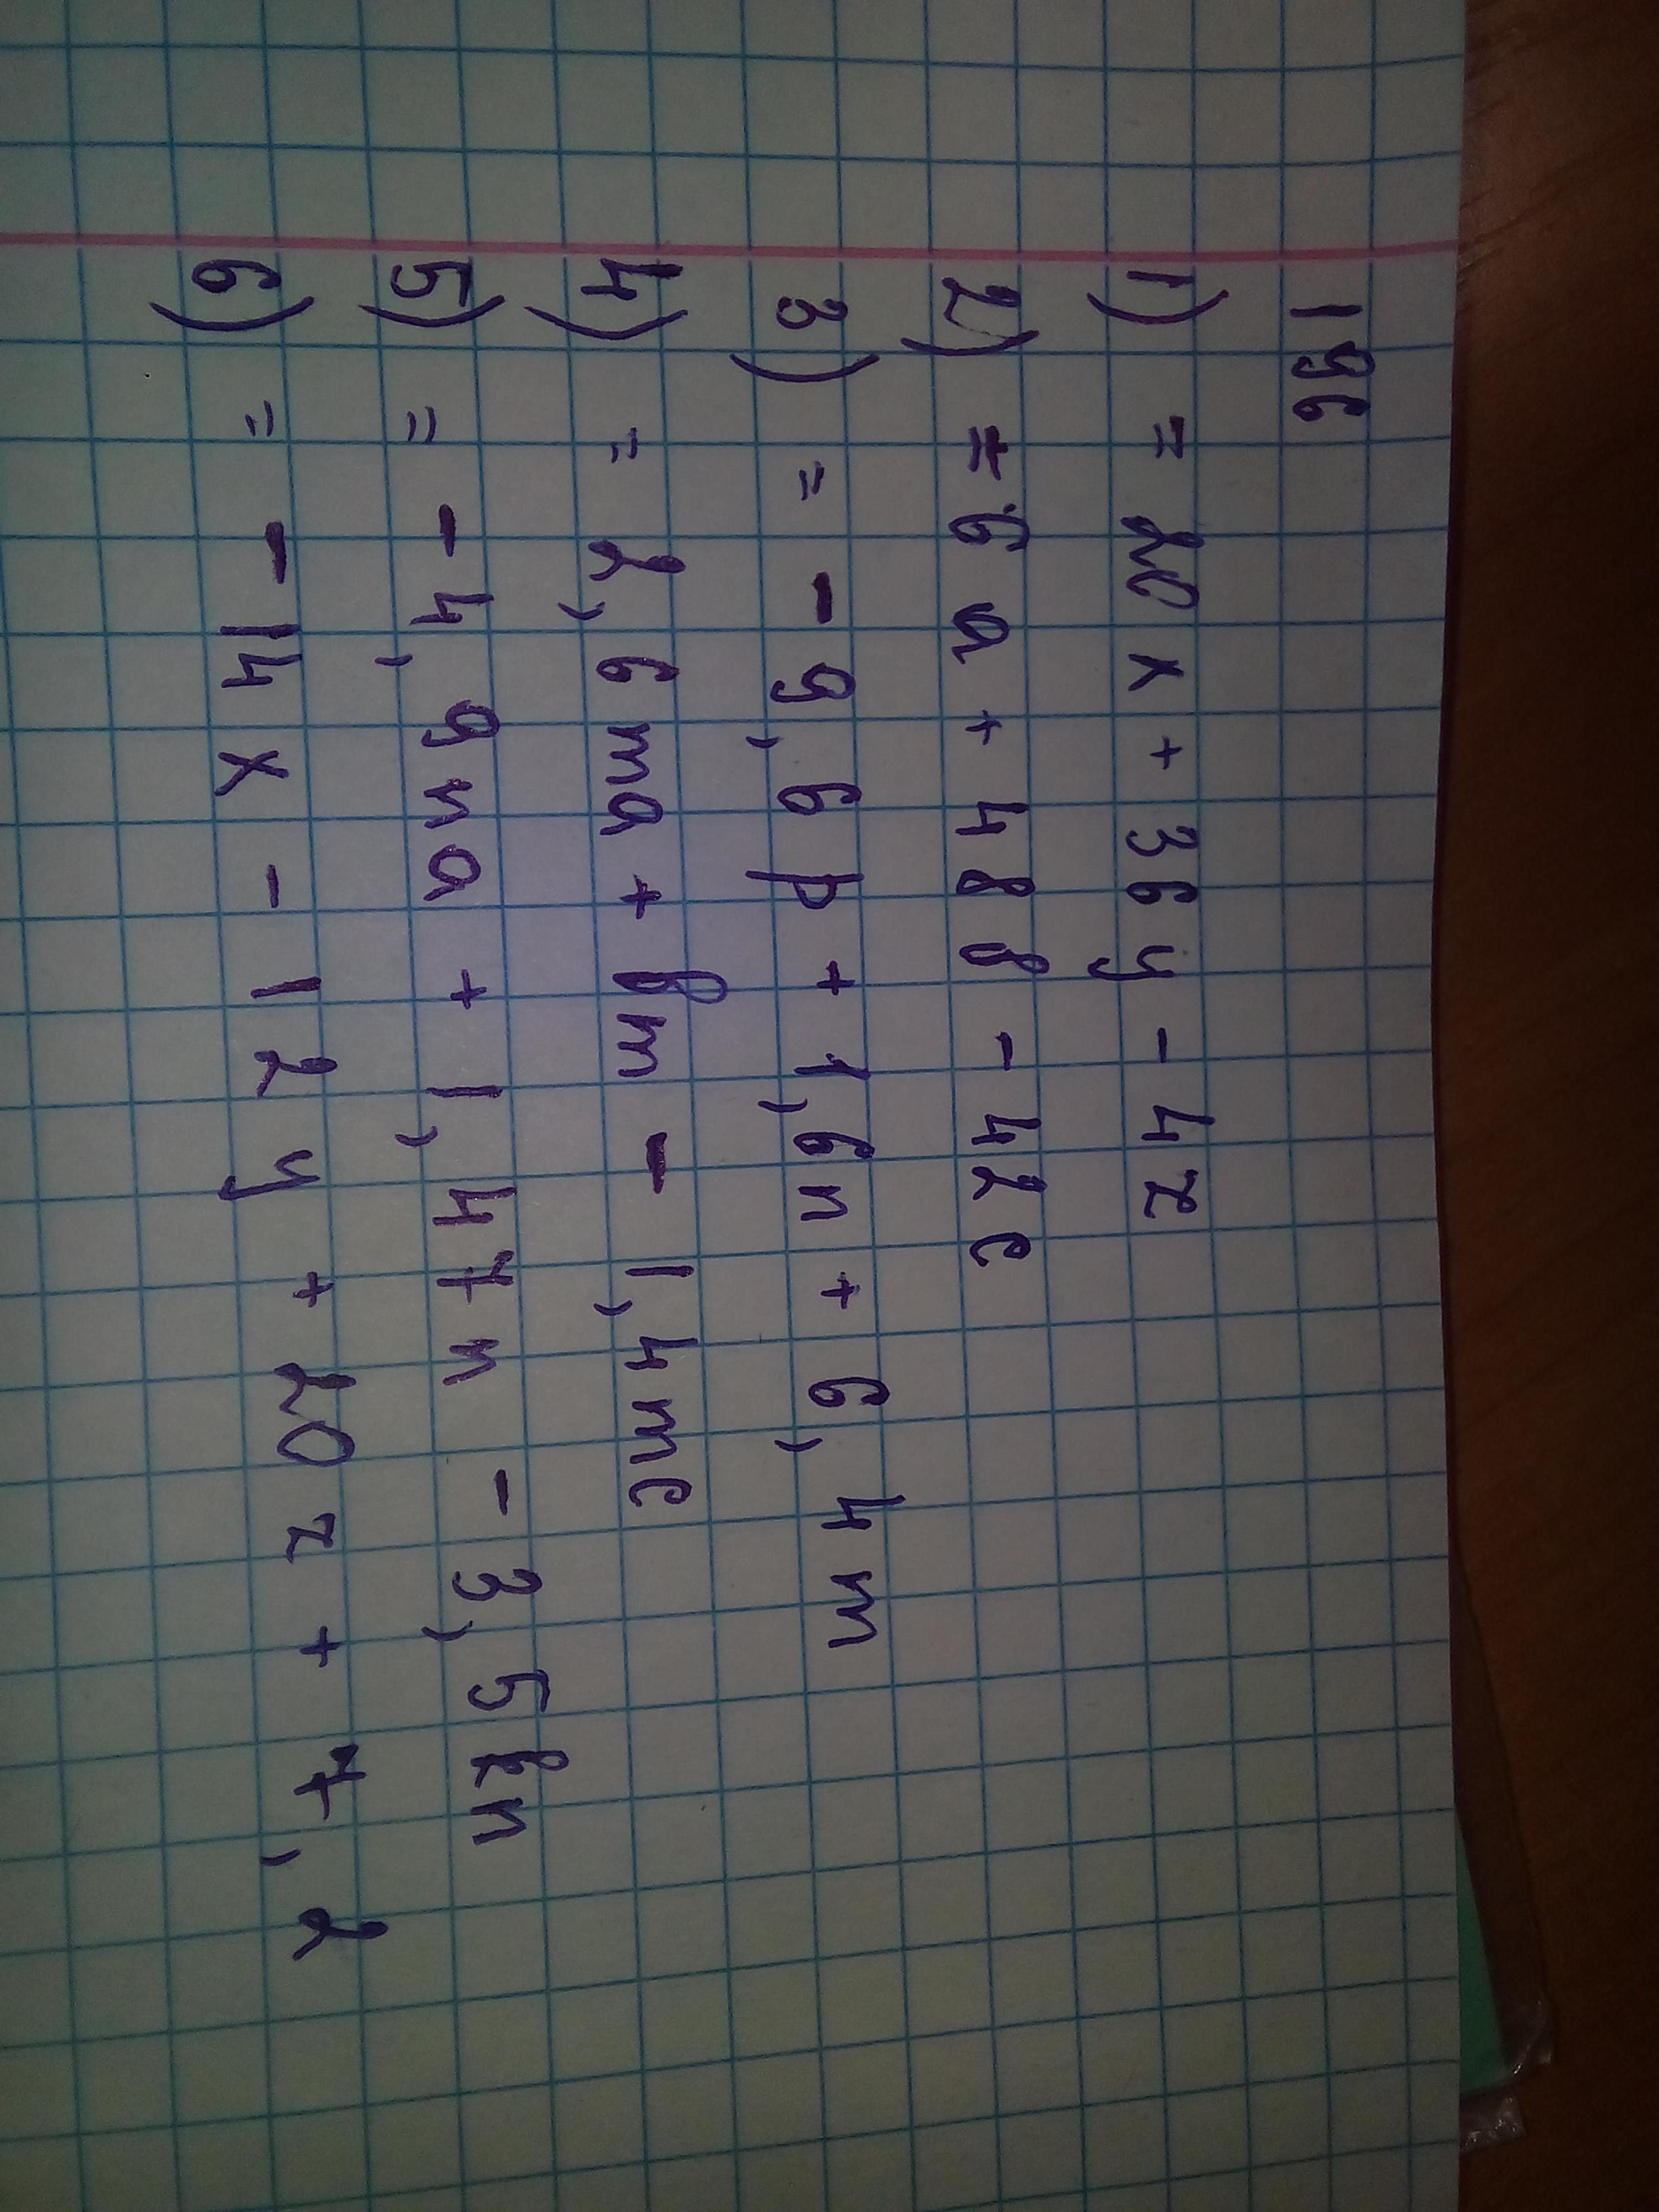 196
1) = 20x + 36y - 4z
2) = 6a + 48b - 42c
3) = - 9,6p + 1,6n + 6,4m
4) = 2,6ma + bm - 1,4mc
5) = - 4,9na + 1,47n - 3,5kn
6) = - 14x - 12y + 20z + 7,2